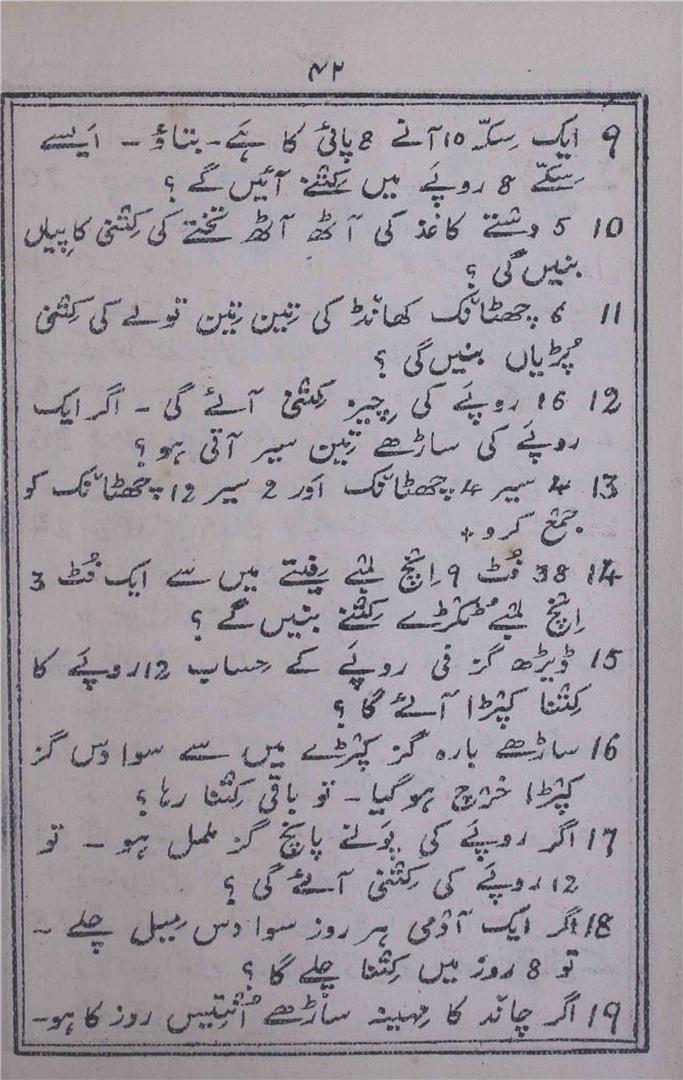 ۴۲
9 ایک سِکّہ 10 آنے 8 پائی کا ہَے۔ بتاؤ۔ اَیسے
سِکّے 8 روپَے میں کِتنے آئیں گے ؟
10 5 دستے کاغذ کی آٹھ آٹھ تختے کی کِتنی کاپِیاں
بنیں گی ؟
11 6 چھٹانک کھانڈ کی تِین تِین تولے کی کِتنی
پُڑیاں بنیں گی ؟
12 16 روپَے کی چِیز کِتنی آئے گی ۔ اگر ایک
روپَے کی ساڑھے تِین سیر آتی ہو ؟
13 4 سیر 4 چھٹانک اَور 2 سیر 12 چھٹانک کو
جمع کرو +
14 38 فُٹ 9 اِنچ لمبے فِیتے میں سے ایک فُٹ 3
اِنچ لمبے ٹُکڑے کِتنے بنیں گے ؟
15 ڈیڑھ گز فی روپَے کے حِساب 12 روپَے کا
کِتنا کپڑا آئے گا ؟
16 ساڑھے بارہ گز کپڑے میں سے سوا دس گز
کپڑا خرچ ہو گیا ۔ تو باقی کِتنا رہا ؟
17 اگر روپَے کی پَونے پانچ گز ململ ہو ۔ تو
12 روپَے کی کِتنی آئے گی ؟
18 اگر ایک آدمی ہر روز سوا دس مِیل چلے ۔
تو 8 روز میں کِتنا چلے گا ؟
19 اگر چاند کا مہِینہ ساڑھے اُنتِیس روز کا ہو۔